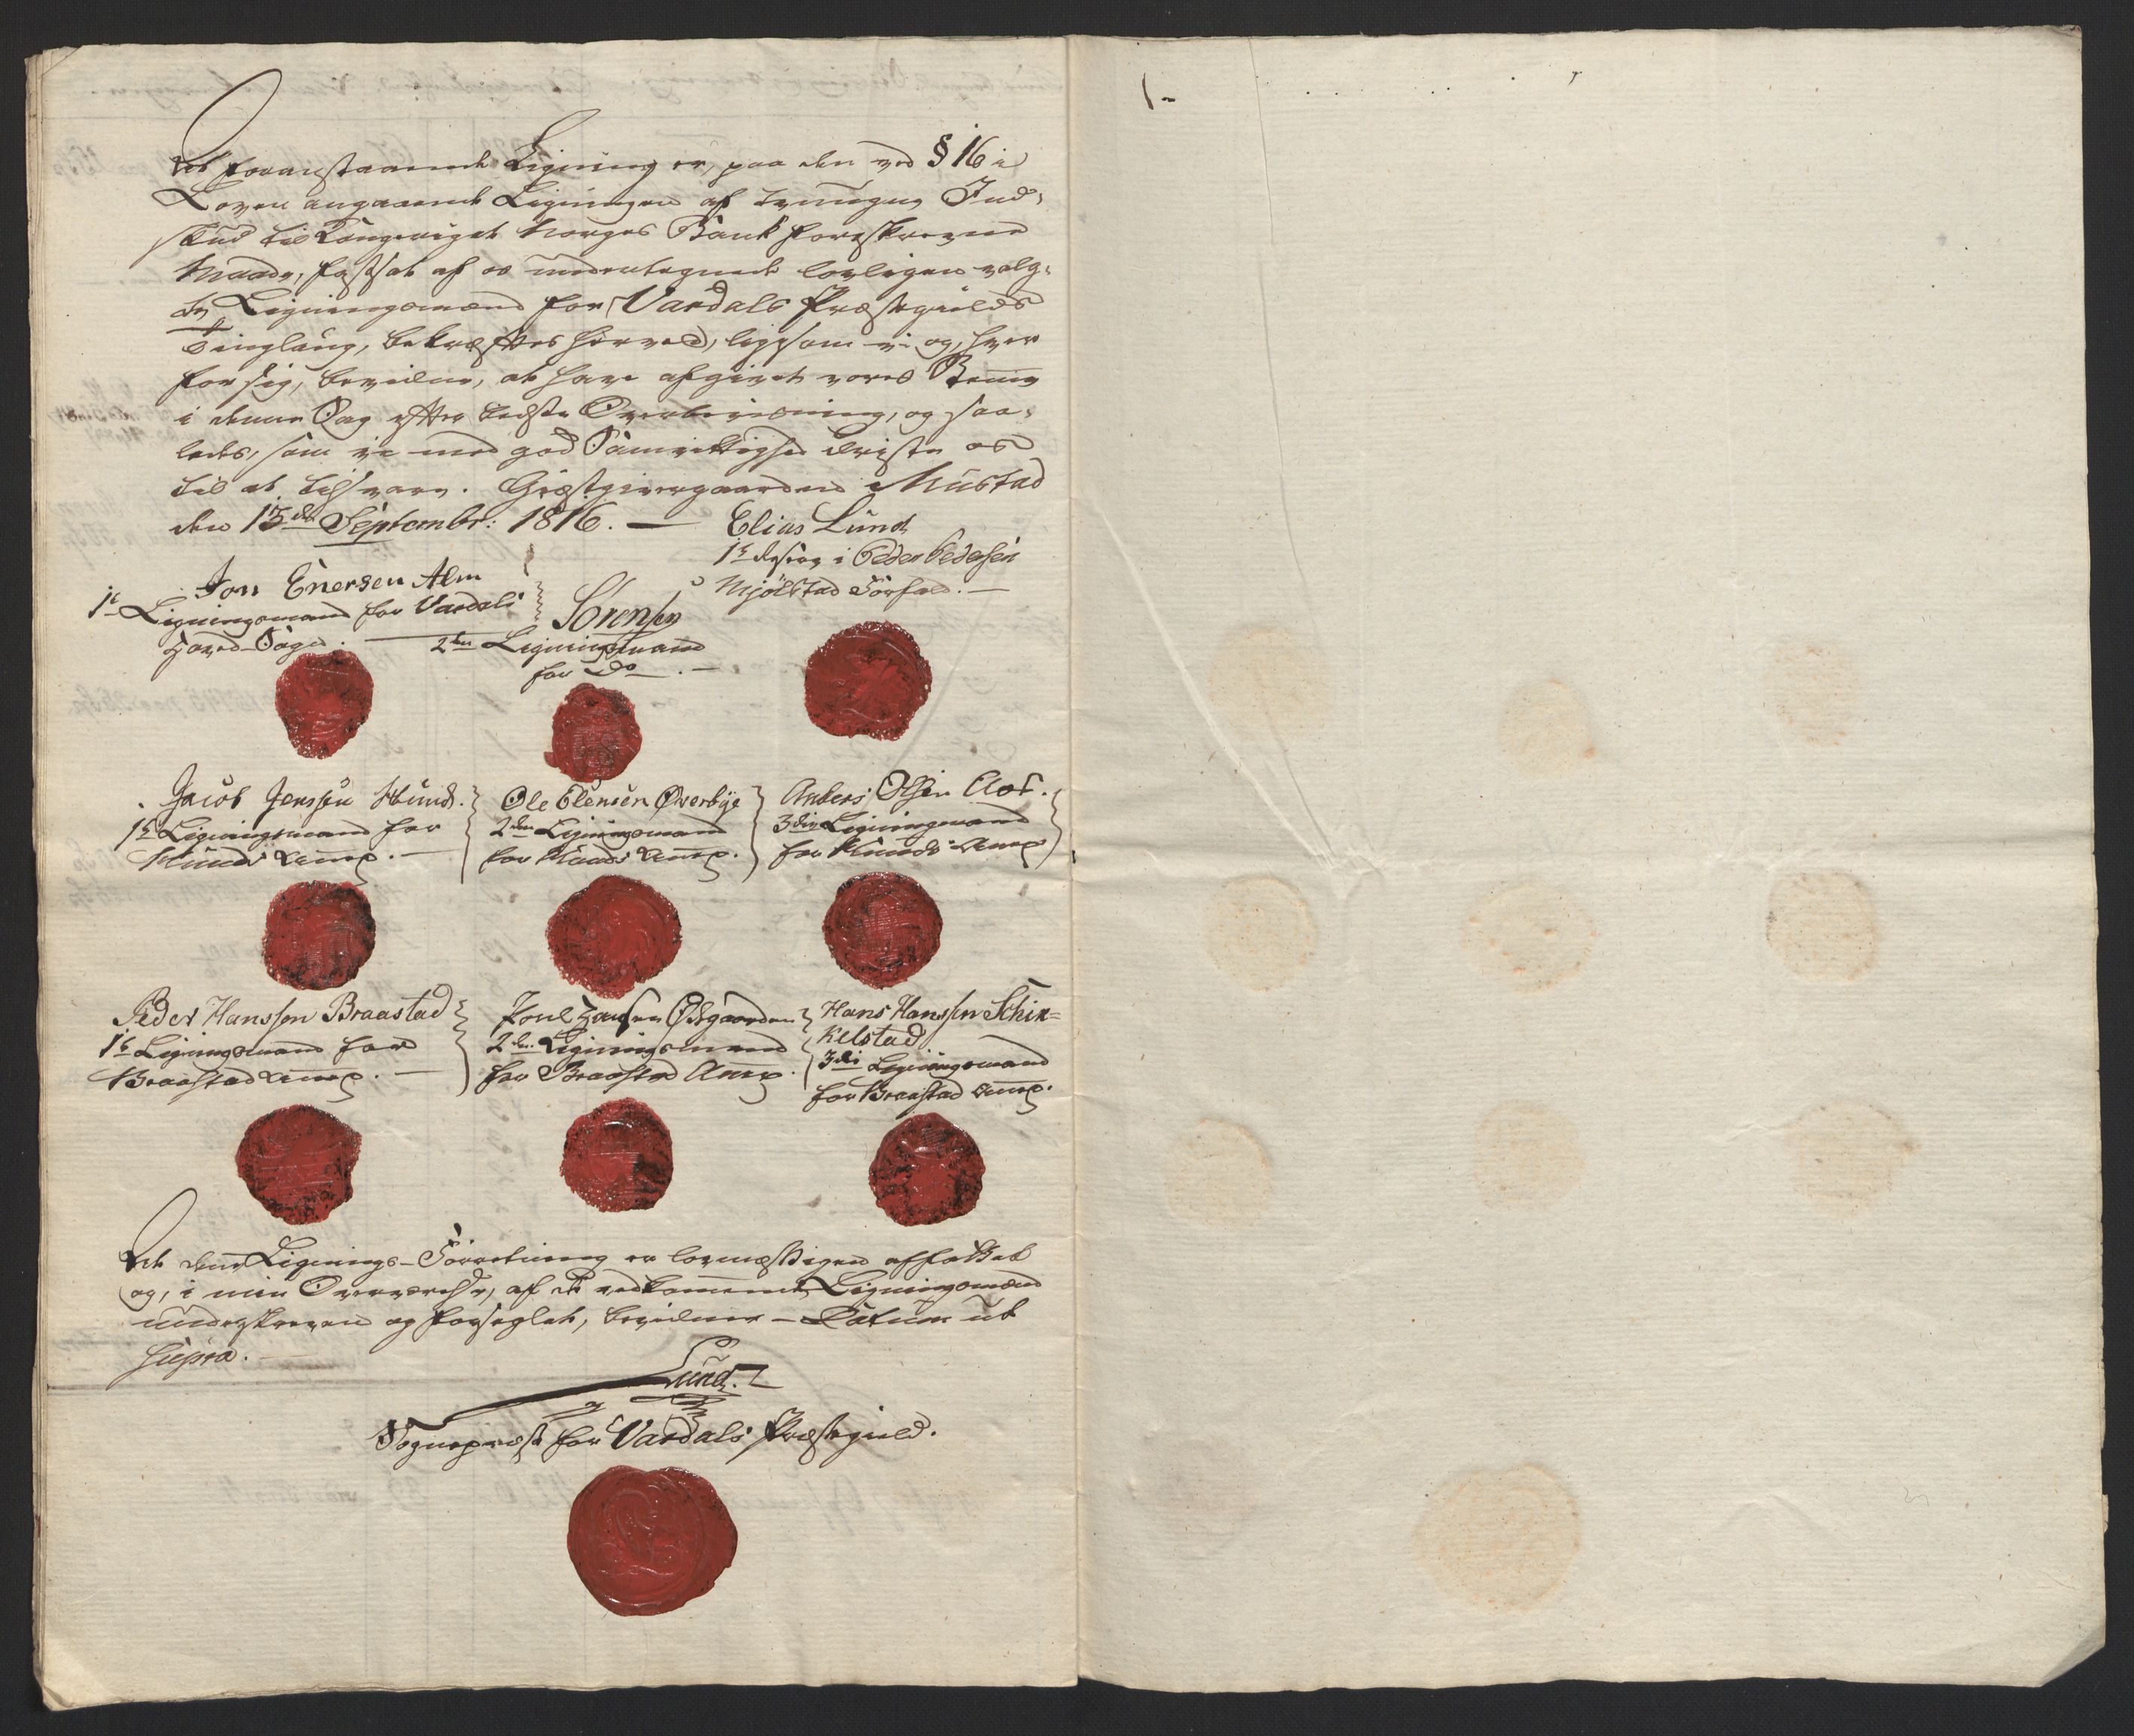 At foranstaaende Ligning er, paa den ved § 16 i
Loven angaaende Ligningen af tvungne Ind-
skud til Kongeriget Norges Bank foreskrevne
Maade, fastsat af os undertegnede lovligen valg-
te Ligningsmænd for Vardals Præstegields
Tinglaug, bekræftes herved, ligesom vi og, hver
for sig, bevidne, at have afgivet vores Stemme
i denne Sag efter bedste Overbeviisning, og saa-
ledes, som vi med god Samvittighed driste os
til at tilsvare. Giæstgivergaarden Mustad
den 13de Septembr: 1816. —
Elias Lund
1te i Peder Pedersen
Mjölstad Forfald. —
Jon Enersen Alm
1te Ligningsmand for Vardals
Hoved-Sogn. —
Sörensen
2den Ligningsmand
for Do. —
Jacob Jenssen Hund.
1te Ligningsmand for
Hunds Annex. —
Ole Elensen Øverbye
2den Ligningsmand
for Hunds Annex.
Anders Olsen Aos.
3die Ligningsmand
for Hunds Annex
Peder Hanssen Braastad
1te Ligningsmand for
Braastad Annex. —
Poul Hansen Ødegaarden
2den Ligningsmand
for Braastad Annex.
Hans Hanssen Schin=
kelstad
3die Ligningsmand
for Braastad Annex.
At denne Lignings-Forretning er lovmæssigen affattet
og, i min Overværelse, af de vedkommende Ligningsmænd
underskreven og forseglet, bevidner – Datum ut
supra. —
Lund.
Sognepræst for Vardals Præstegield.